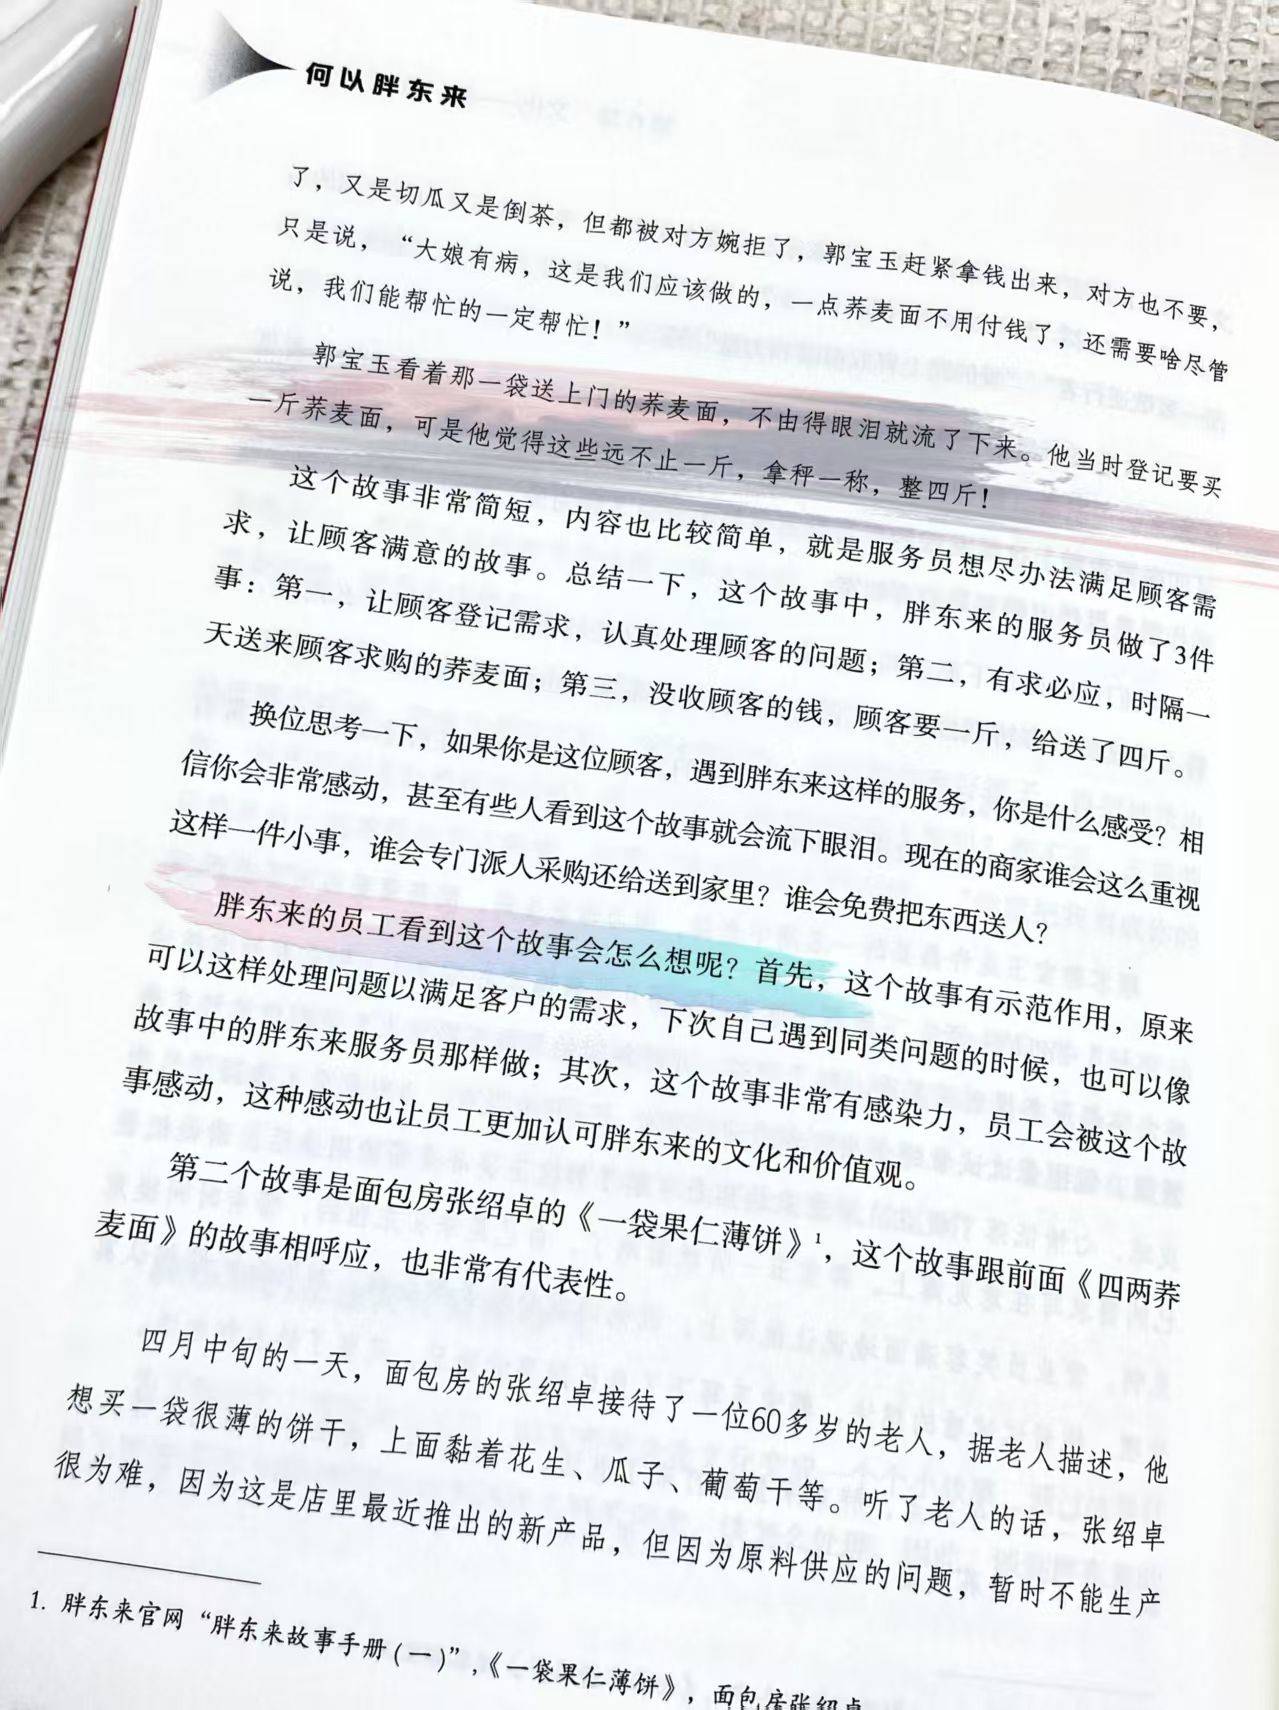 何以胖东来
了，又是切瓜又是倒茶，但都被对方婉拒了，郭宝玉赶紧拿钱出来，对方也不要，
只是说，“大娘有病，这是我们应该做的，一点荞麦面不用付钱了，还需要啥尽管
说，我们能帮忙的一定帮忙！”
郭宝玉看着那一袋送上门的荞麦面，不由得眼泪就流了下来。他当时登记要买
一斤荞麦面，可是他觉得这些远不止一斤，拿秤一称，整四斤！
这个故事非常简短，内容也比较简单，就是服务员想尽办法满足顾客需
求，让顾客满意的故事。总结一下，这个故事中，胖东来的服务员做了3件
事：第一，让顾客登记需求，认真处理顾客的问题；第二，有求必应，时隔一
天送来顾客求购的荞麦面；第三，没收顾客的钱，顾客要一斤，给送了四斤。
换位思考一下，如果你是这位顾客，遇到胖东来这样的服务，你是什么感受？相
信你会非常感动，甚至有些人看到这个故事就会流下眼泪。现在的商家谁会这么重视
这样一件小事，谁会专门派人采购还给送到家里？谁会免费把东西送人？
胖东来的员工看到这个故事会怎么想呢？首先，这个故事有示范作用，原来
可以这样处理问题以满足客户的需求，下次自己遇到同类问题的时候，也可以像
故事中的胖东来服务员那样做；其次，这个故事非常有感染力，员工会被这个故
事感动，这种感动也让员工更加认可胖东来的文化和价值观。
第二个故事是面包房张绍卓的《一袋果仁薄饼》1，这个故事跟前面《四两荞
麦面》的故事相呼应，也非常有代表性。
四月中旬的一天，面包房的张绍卓接待了一位60多岁的老人，据老人描述，他
想买一袋很薄的饼干，上面黏着花生、瓜子、葡萄干等。听了老人的话，张绍卓
很为难，因为这是店里最近推出的新产品，但因为原料供应的问题，暂时不能生产
1. 胖东来官网“胖东来故事手册(一)”,《一袋果仁薄饼》，面包房张绍卓